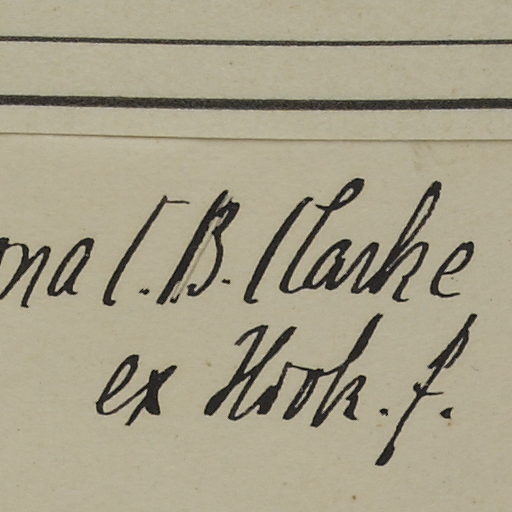 ona C.B. Clarke
ex Hook. f.